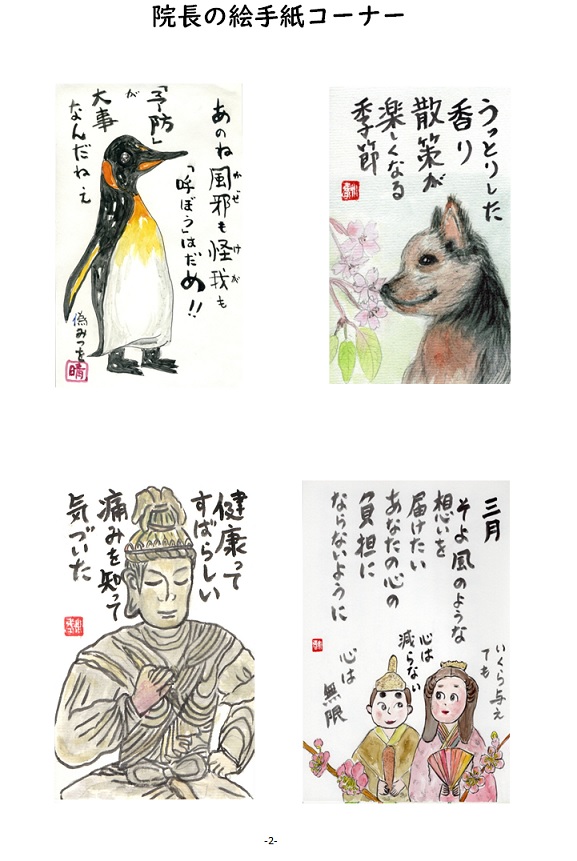 院長の絵手紙コーナー
あのね風邪も怪我も
かぜ
けが
「呼ぼう」はだめ!!
「予防」
が
大事
なんだねぇ
偽みつを
晴
うっとりした
香り
散策が
楽しくなる
季節
健康って
すばらしい
痛みを知って
気づいた
三月
そよ風のような
想いを
届けたい
あなたの心の
負担に
ならないように
いくら与え
ても
心は
減らない
心は
無限
-2-